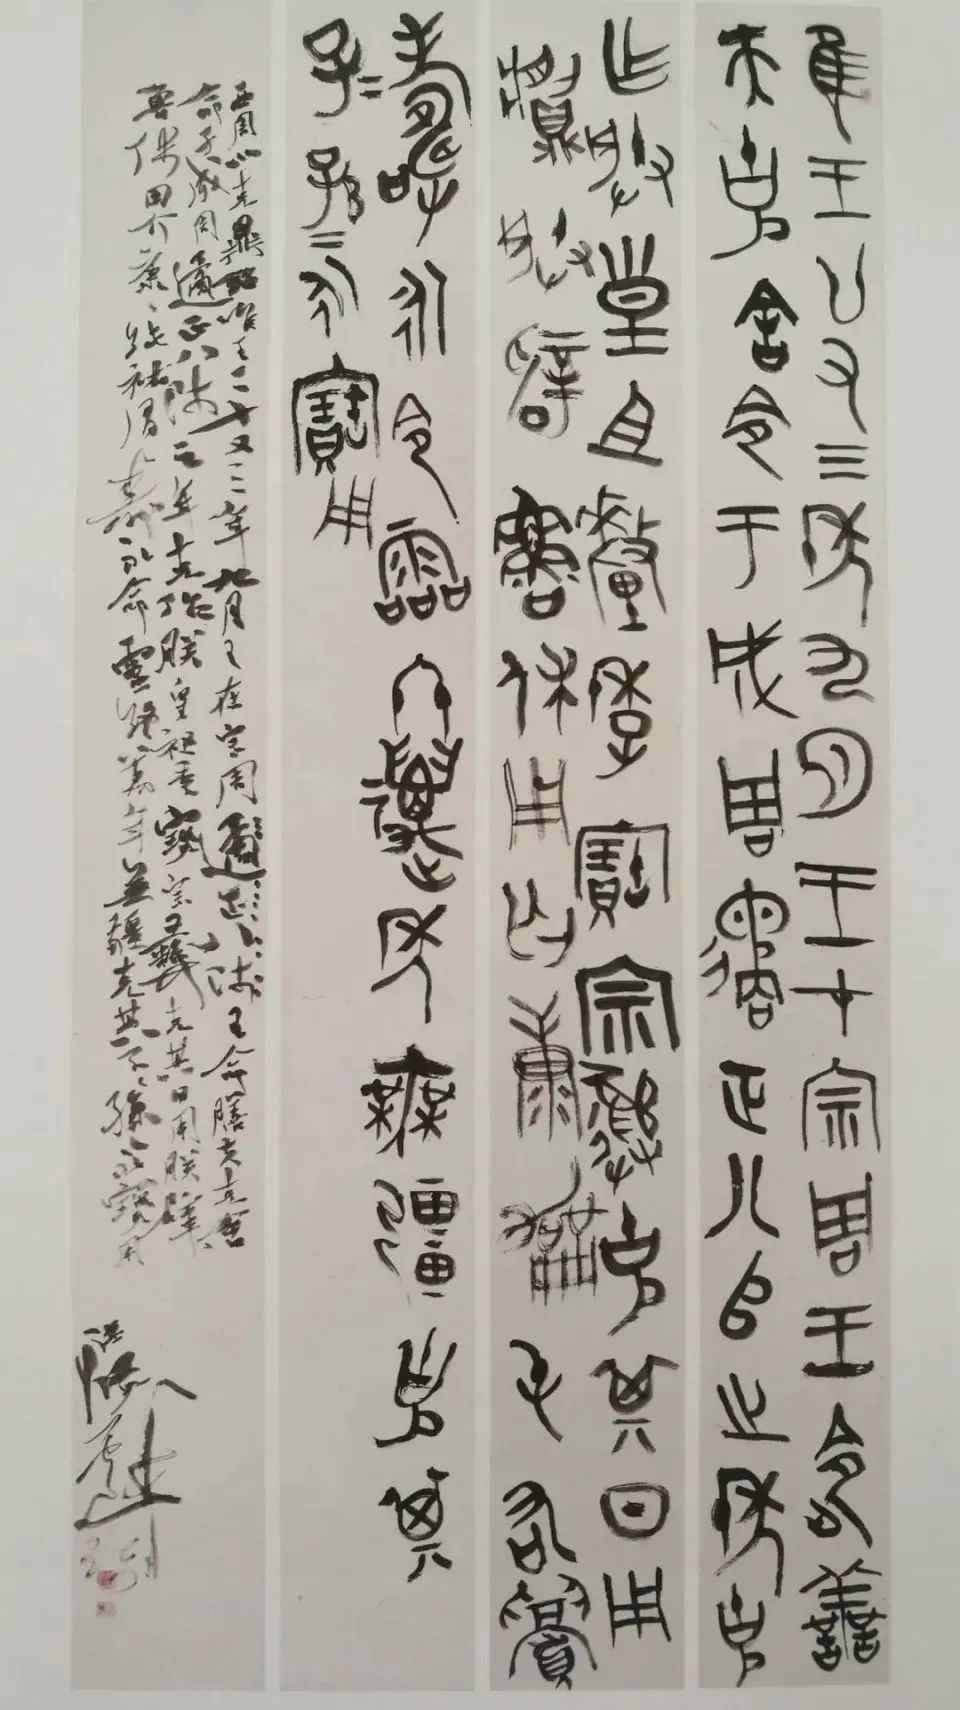 隹王廿又三年九月王才宗周王令善
夫克舍令于成周遹正八𠂤之年克
乍朕皇且釐季寶宗彝克其日用
䵼朕辟魯休用匄康屯右眉
壽永令霝冬萬年無疆克其
子=孫=永寶用
西周小克鼎銘唯王二十又三年九月王在宗周遹正八師王命膳夫克舍
命于成周遹正八師之年克作朕皇祖釐季寶宗彝克其日用朕辟
魯休用匄康純祐眉壽永命靈終萬年無疆克其子=孫永寶用